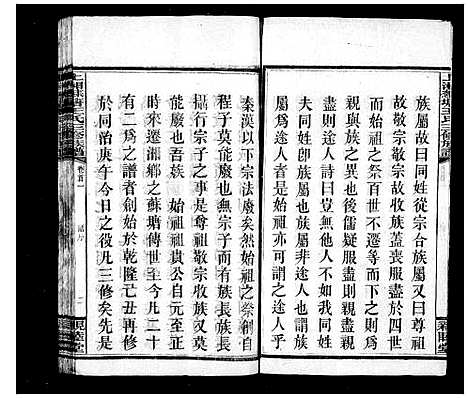 族屬故曰同姓從宗合族屬又曰尊祖
故敬宗敬宗故收族蓋喪服盡於四世
而始祖之祭百世不遷等而下之則爲
途人而已後儒疑服盡則親盡親
盡則途人詩曰豈無他人不如我同姓
夫同姓卽族屬也族屬非途人也不當
屬爲途人者是始祖亦可謂之途人乎
秦漢以下宗法廢矣然始祖之祭創自
程子莫能廢也無宗子而有族長族長
攝行宗子之事是尊祖敬宗收族又莫
能廢也吾族 始祖祖貴公自元至正
時來遷湘鄉之蘇塘傳世至今凡二十
有二爲之譜者創始於乾隆己丑再修
於同治庚午今日之役凡三修矣先是
上湘蘇塘王氏三修族譜
卷首一
親睦堂